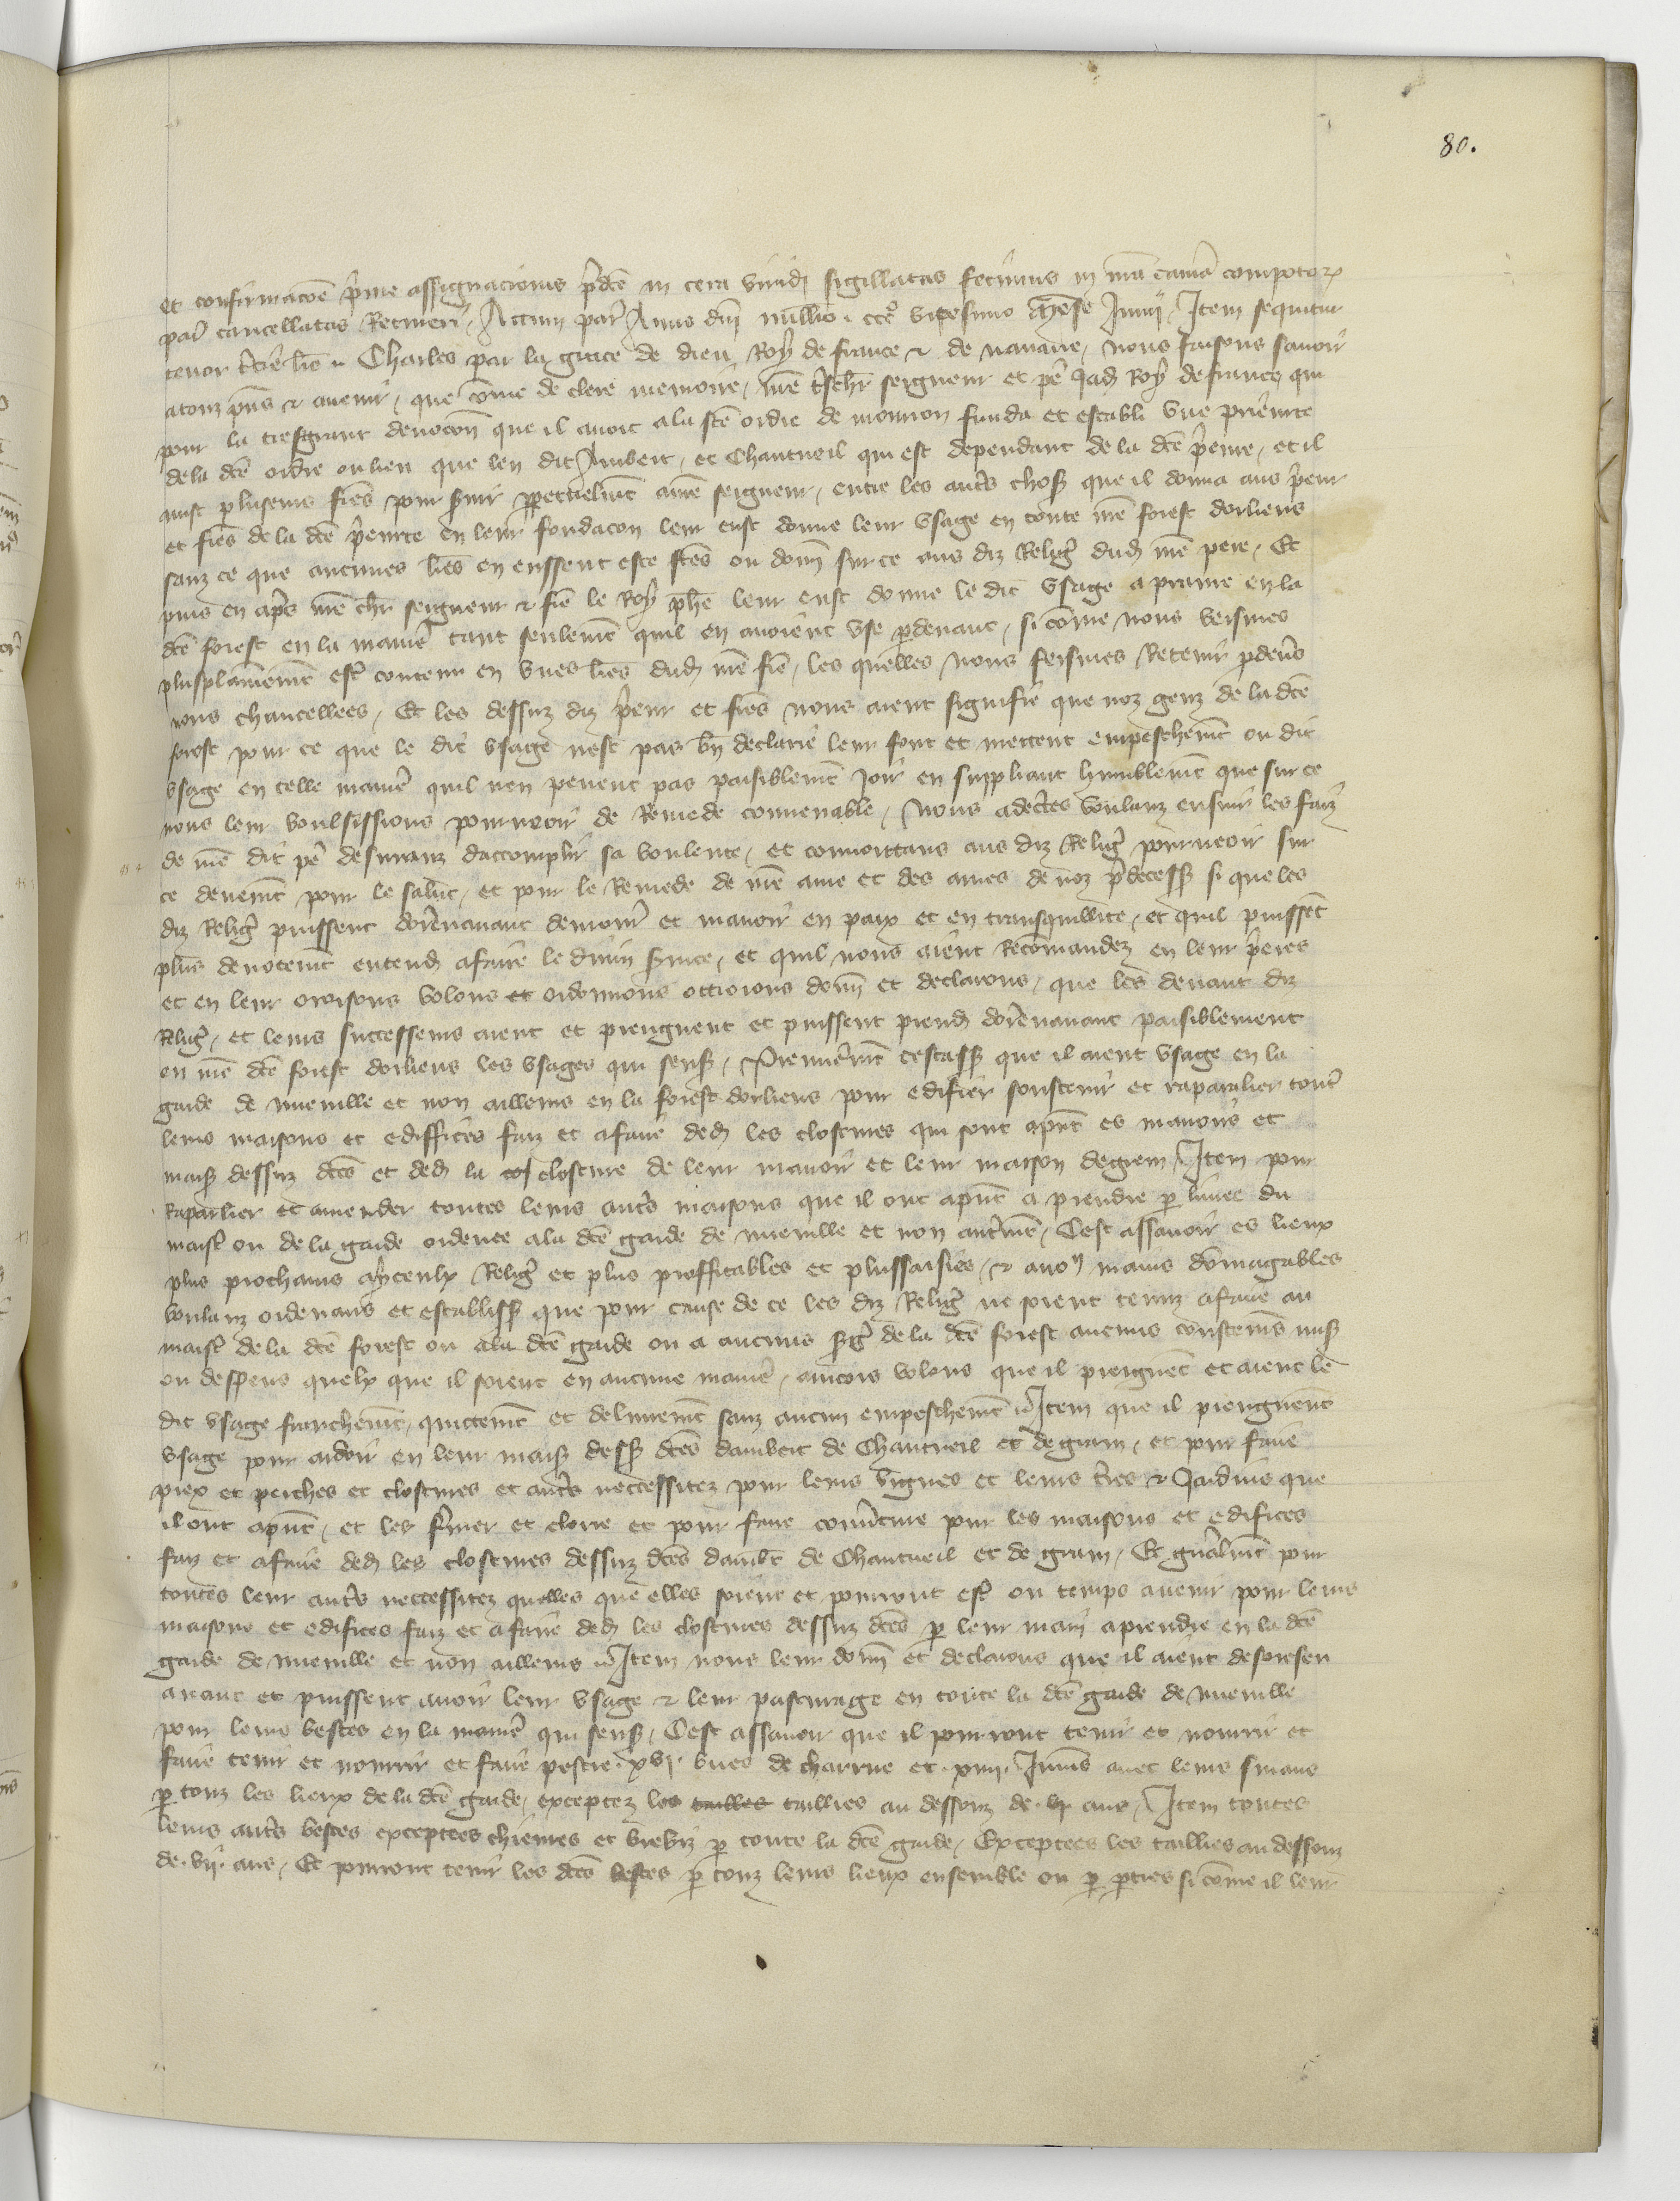 80.
et confirmacoē p̄me assignacionis p̄dcē in cera virid sigillatas fecimus in nrā camā compotoꝝ
paris cancellatas Retineri / Actum paris Anno dnī millio ccc⁰ vicesimo mēse Junii / Item sequitur
tenor trēie lrē Charles par la grace de dieu Roy de france & de nauarre / nous faisons sauoir
atouz pn̄s & auenir / que cōme de clere memoire / nrē treschr̄ seigneur et pē Jad Roy de france qui
pour la tresgrant deuocoñ que il auoit ala scē ordre de monron funda et establi vne prieurte
de la dcē ordre ou lieu que len dit Ambert / et Chanteuil qui est dependant de la dcē p̄eure / et il
mist pluseurs frēs pour s̄uir ppetuelmt̄ nrē seigneur / entre les autr̄s choses que il donna aus p̄eur
et frēs de la dcē p̄eurte en leur fondacon leur eust donne leur vsage en toute nrē forest dorliens
sanz ce que aucunes lrēs en eussent este fcēs ou donñ sur ce aus diz Religꝰ dud nrē pere / Et
puis en apr̄s nrē chr̄ seigneur & frē le Roy phē leur eust donne le dit vsage a pranre en la
dcē forest en la manier̄ tant seulemt̄ quil en auoient vse pdeuant / si cōme nous veismes
plusplainemt̄ estr̄ contenu en vnes lrēs dud nrē frē / les quelles nous feismes Retenir pdeūs
nous chancellees / Et les dessuz diz p̄eur et frēs nous aient signifie que noz genz de la dcē
forest pour ce que le dit vsage nest pas bn̄ declarie leur font et mettent empeschemt̄ ou dit
vsage en telle manier̄ quil nen peuent pas paisiblemt̄ Joir en suppliant humblemt̄ que sur ce
nous leur voulsissions pourueoir de Remede conuenable / Nous adectes voulanz ensuir les faiz
de nrē dit pē desiranz daccomplir sa voulente / et conuoittans aus diz Religꝰ pourueoir sur
ce deuemt̄ pour le salut / et pour le Remede de nrē ame et des ames de noz p̄decess si que les
diz Religꝰ puissent dorēnauant demourer et manoir en paix et en transquillite / et quil puissēt
plus deuotemt̄ entend afaire le diuin s̄uice / et quil nous aient Recōmandez en leur p̄eres
et en leur oroisons volons et ordennons ottroions donñ et declarons / que les deuant diz
Religꝰ / et leurs successeurs aient et preignent et puissent prend dorēnauant paisiblement
en nrē dcē forest dorliens les vsages qui sens / Premieremt̄ cestass que il aient vsage en la
garde de nueuille et non ailleurs en la forest dorliens pour edifier soustenir et raparalier toutꝰ
leurs maisons et ediffices faiz et afaire ded les clostures qui sont apnt̄ es manoirs et
mais dessuz dcēs et ded la closture de leur manoir et leur maison degrem / Item pour
Raparlier et amender toutes leurs autr̄s maisons que il ont apnt̄ a prendre p̄ liuree du
maistr̄ ou de la garde ordenee ala dcē garde de nueuille et non autremt̄ / Cest assauoir es lieux
plus prochains ayceulx Religꝰ et plus proffitables et plussaisiees / & auoȳ mains dōmagables
voulanz ordenans et establiss que pour cause de ce les diz Religꝰ ne soient tenuz afaire au
maistr̄ de la dcē forest ou ala dcē garde ou a aucuns s̄gꝰ de la dcē forest aucuns coustemēs mis
ou despens quelx que il soient en aucune manier̄ / aincois volons que il preignēt et aient le
dit vsage franchemt̄ / quittemt̄ et deliuremt̄ sanz aucun empeschemt̄ Item que il preignent
vsage pour ardoir en leur mais dess dcēs dambert de Chanteuil et degram / et pour faire
piex et perches et clostures et autr̄s neccessitez pour leurs vignes et leurs tr̄res & Jardins que
il ont apnt̄ / et les fermer et clorre et pour faire couūture pour les maisons et edifices
faiz et afaire ded les clostures dessuz dcēs dambt̄ de Chanteuil et de gram / Et gnālmt̄ pour
toutes leur autr̄s neccessitez quelles que elles soient et pourront estr̄ ou temps auenir pour leurs
maisons et edifices faiz et afaire ded les clostures dessuz dcēs p̄ leur main aprendre en la dcē
garde de nueuille et non ailleurs Item nous leur donñ et declarons que il aient desoresen
auant et puissent auoir leur vsage & leur pasturage en toute la dcē garde de nueuille
pour leurs bestes en la manier̄ qui sens / Cest assauoir que il pourront tenir et nourrir et
faire tenir et nourrir et faire pestre xvj bues de charrue et xiiij Jumēs auec leurs suians
p̄ touz les lieux de la dcē garde / exceptez les tailles taillies au dessouz de vij ans / Item toutes
leurs autr̄s bestes exceptees chieures et brebiz p̄ toute la dcē garde / Exceptees les taillies au dessouz
de vij ans / Et pourront tenir les dcēs bestes p̄ touz leurs lieux ensemble ou p̄ pties si cōme il leur